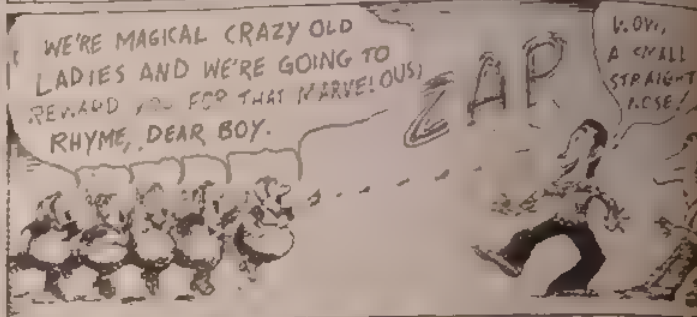 WE'RE MAGICAL CRAZY OLD
LADIES AND WE'RE GOING TO
REWARD YOU FOR THAT MARVELOUS
RHYME, DEAR BOY.
ZAP
WOW,
A SMALL
STRAIGHT
NOSE!